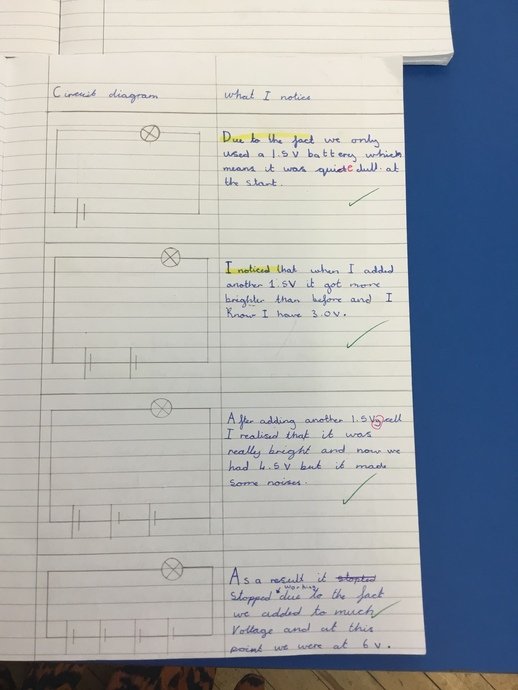 Circuit diagram
what I notice
Due to the fact we only
used a 1.5V battery which
means it was quide dull at
the start.
I noticed that when I added
another 1.5V it got more
brighter than before and I
Know I have 3.0v.
After adding another 1.5V cell
I realised that it was
really bright and now we
had 4.5V but it made
some noises.
As a result it stopted
Stopped working due to the fact
we added to much
Voltage and at this
point we were at 6v.